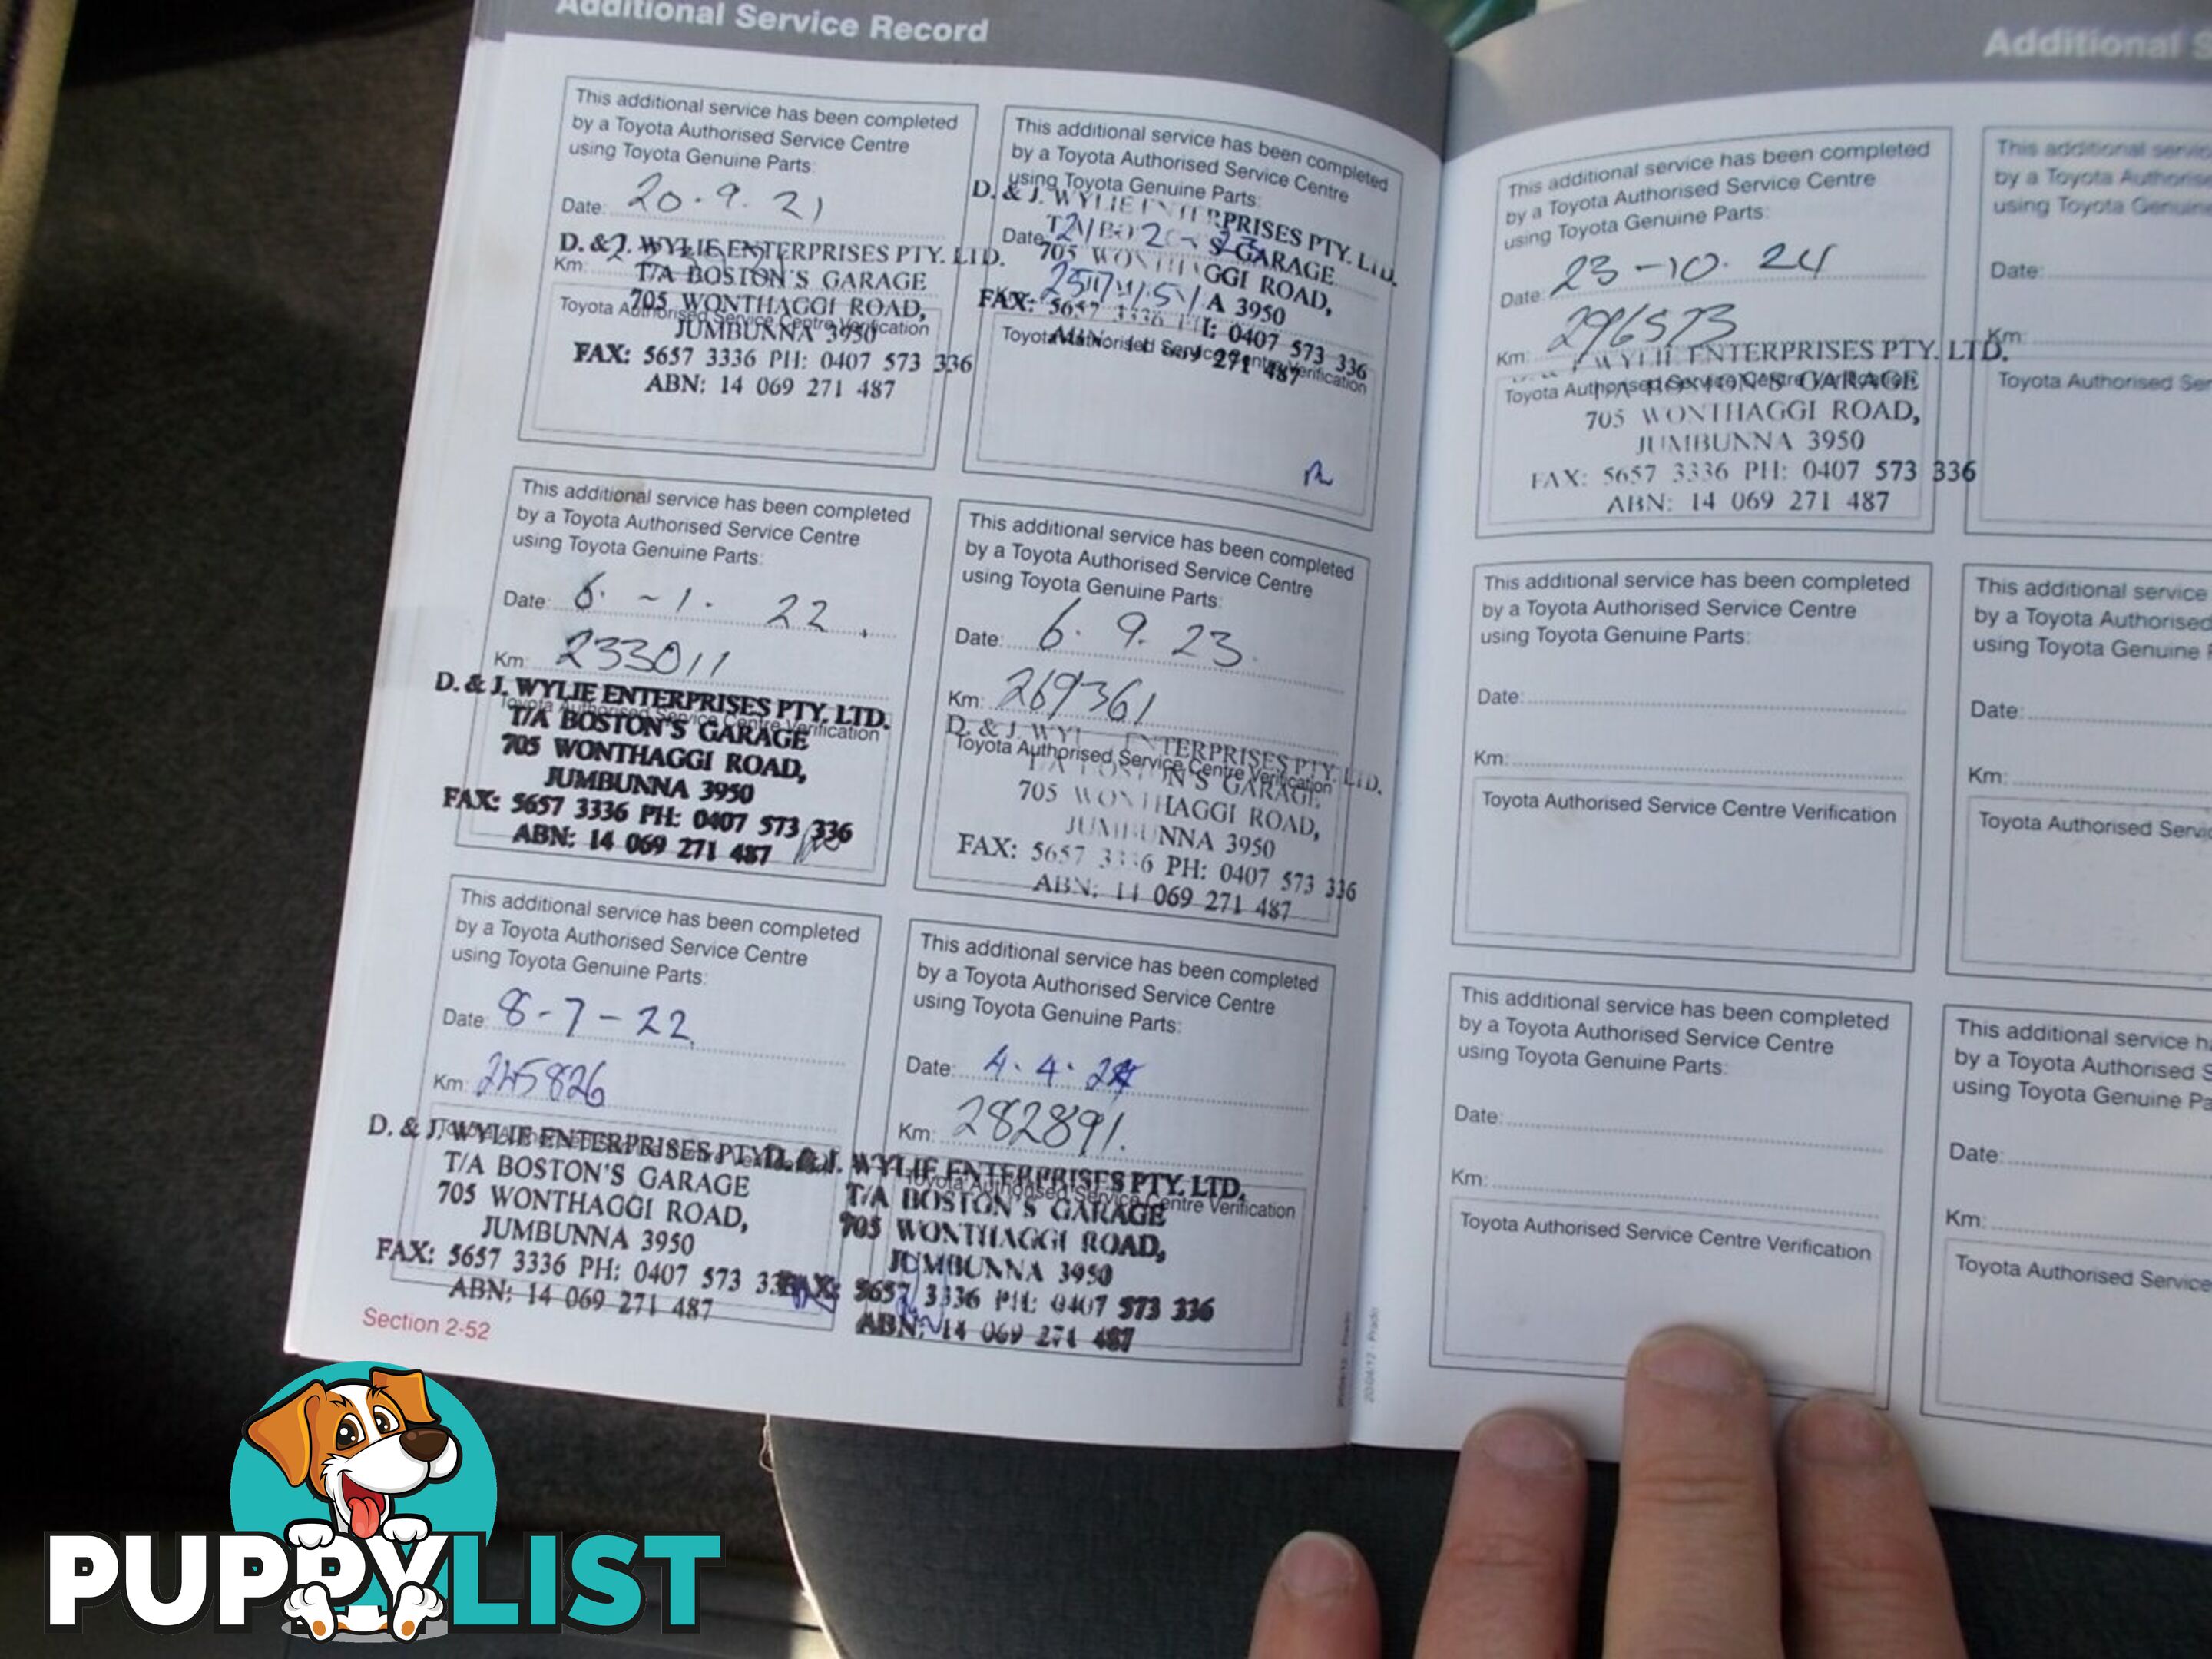 Additional Service Record
This additional service has been completed
by a Toyota Authorised Service Centre
using Toyota Genuine Parts:
Date: 20.9.21
D. & J. WYLIE ENTERPRISES PTY. LTD.
Km:
T/A BOSTON'S GARAGE
705 WONTHAGGI ROAD,
Toyota Authorised Service Centre Verification
JUMBUNNA 3950
FAX: 5657 3336 PH: 0407 573 336
ABN: 14 069 271 487
This additional service has been completed
by a Toyota Authorised Service Centre
using Toyota Genuine Parts:
Date: 6.-1.22.
Km: 233011
D. & J. WYLIE ENTERPRISES PTY. LTD.
Toyota Authorised Service Centre Verification
T/A BOSTON'S GARAGE
705 WONTHAGGI ROAD,
JUMBUNNA 3950
FAX: 5657 3336 PH: 0407 573 336
ABN: 14 069 271 487
This additional service has been completed
by a Toyota Authorised Service Centre
using Toyota Genuine Parts:
Date: 8-7-22
Km: 245826
D. & J. WYLIE ENTERPRISES PTY
T/A BOSTON'S GARAGE
705 WONTHAGGI ROAD,
JUMBUNNA 3950
FAX: 5657 3336 PH: 0407 573 33
ABN: 14 069 271 487
Section 2-52
This additional service has been completed
by a Toyota Authorised Service Centre
using Toyota Genuine Parts:
D. & J. WYLIE ENTERPRISES PTY. LTD.
Date:
S GARAGE
705 WONTHAGGI ROAD,
A 3950
FAX: 5657 3336 PH: 0407 573 336
Toyota Authorised Service Centre Verification
271 487
This additional service has been completed
by a Toyota Authorised Service Centre
using Toyota Genuine Parts:
Date: 6.9.23.
Km: 269361
D. & J. WYLIE ENTERPRISES PTY. LTD.
Toyota Authorised Service Centre Verification
T/A BOSTON'S GARAGE
705 WONTHAGGI ROAD,
JUMBUNNA 3950
FAX: 5657 3336 PH: 0407 573 336
ABN: 14 069 271 487
This additional service has been completed
by a Toyota Authorised Service Centre
using Toyota Genuine Parts:
Date: 4.4.24
Km: 282891.
D. & J. WYLIE ENTERPRISES PTY. LTD.
Toyota Authorised Service Centre Verification
T/A BOSTON'S GARAGE
705 WONTHAGGI ROAD,
JUMBUNNA 3950
FAX: 5657 3336 PH: 0407 573 336
ABN: 14 069 271 487
20/04/12 - Prado
Additional S
This additional service has been completed
by a Toyota Authorised Service Centre
using Toyota Genuine Parts:
Date: 23-10.24
Km: 296573
WYLIE ENTERPRISES PTY. LTD.
Toyota Authorised Service Centre Verification
T/A BOSTON'S GARAGE
705 WONTHAGGI ROAD,
JUMBUNNA 3950
FAX: 5657 3336 PH: 0407 573 336
ABN: 14 069 271 487
This additional service has been completed
by a Toyota Authorised Service Centre
using Toyota Genuine Parts:
Date:
Km:
Toyota Authorised Service Centre Verification
This additional service has been completed
by a Toyota Authorised Service Centre
using Toyota Genuine Parts:
Date:
Km:
Toyota Authorised Service Centre Verification
This additional servic
by a Toyota Authorise
using Toyota Genuine
Date:
Km:
Toyota Authorised Ser
This additional service
by a Toyota Authorised
using Toyota Genuine
Date:
Km:
Toyota Authorised Servic
This additional service h
by a Toyota Authorised S
using Toyota Genuine Pa
Date:
Km:
Toyota Authorised Service
PUPPYLIST